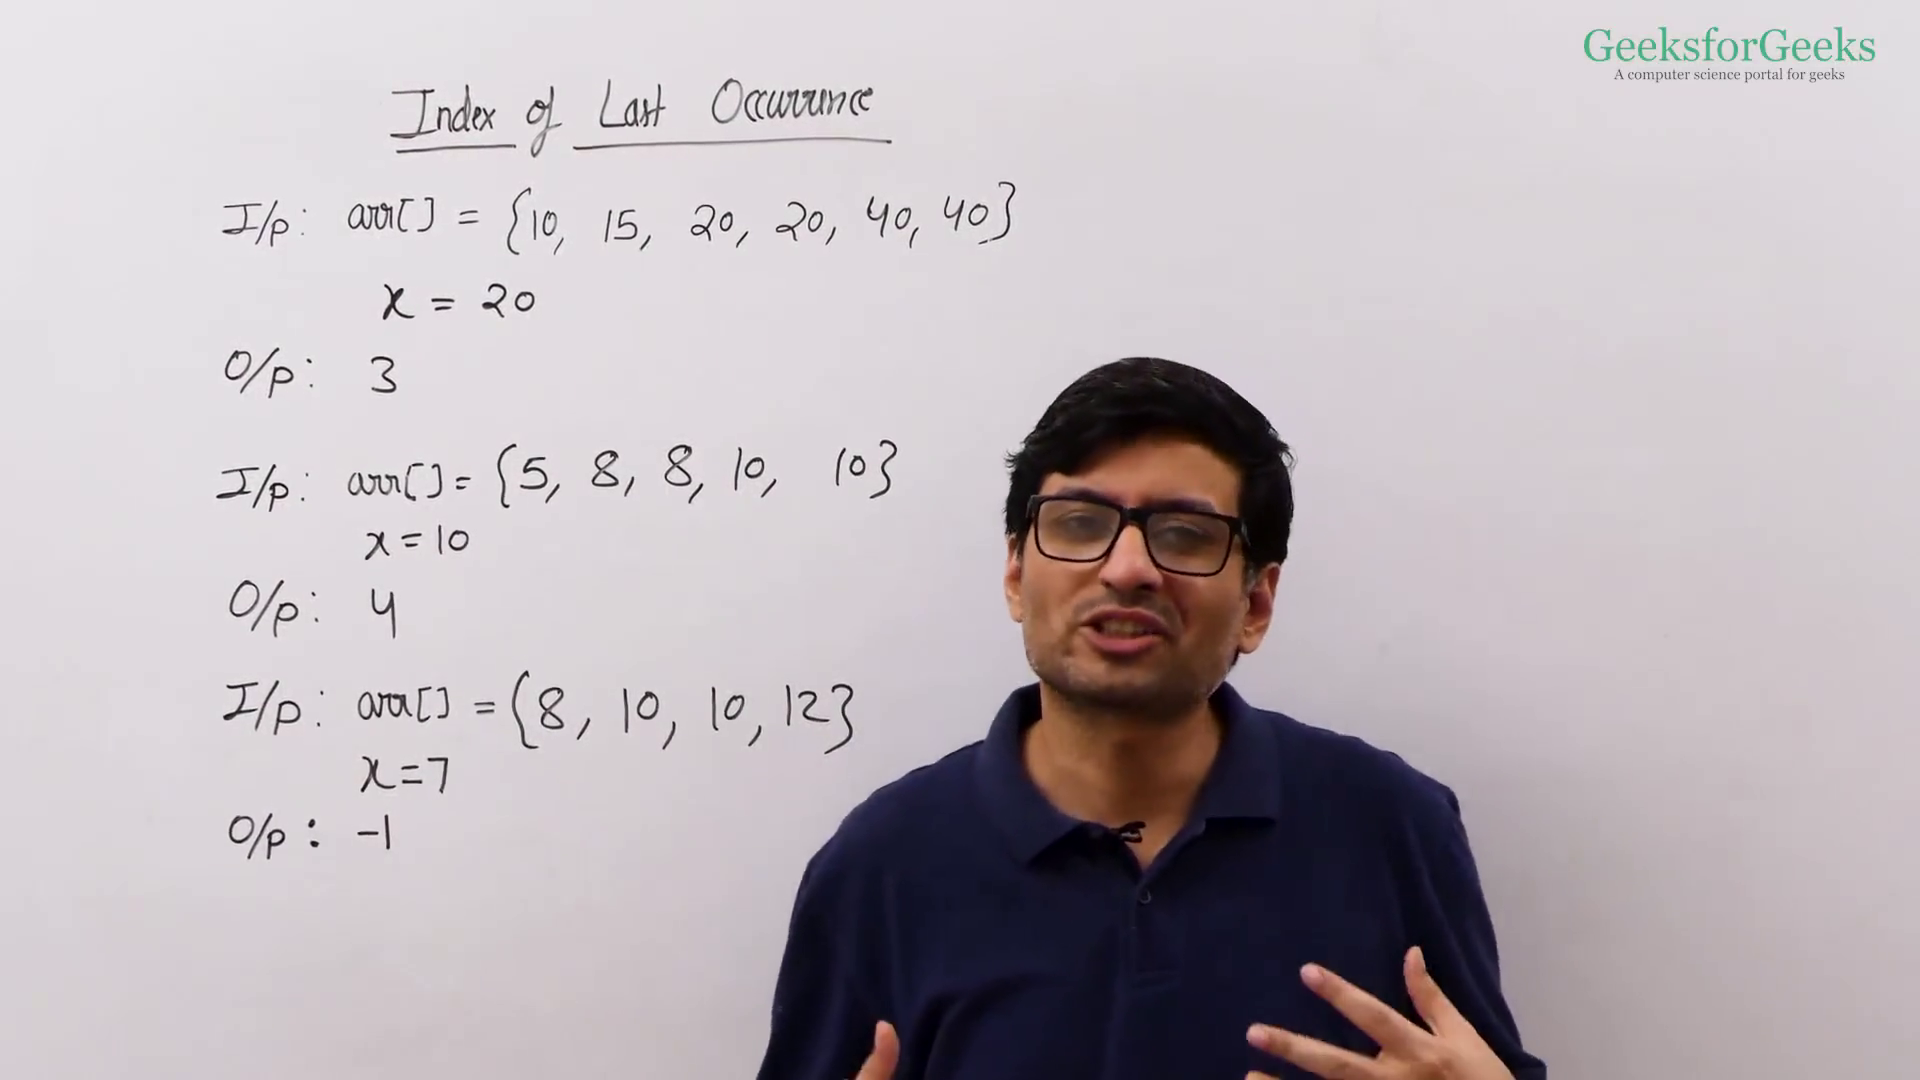 GeeksforGeeks
A computer science portal for geeks
Index of Last Occurrence
I/p: arr[] = {10, 15, 20, 20, 40, 40}
x = 20
O/p: 3
I/p: arr[] = {5, 8, 8, 10, 10}
x = 10
O/p: 4
I/p: arr[] = {8, 10, 10, 12}
x = 7
O/p: -1